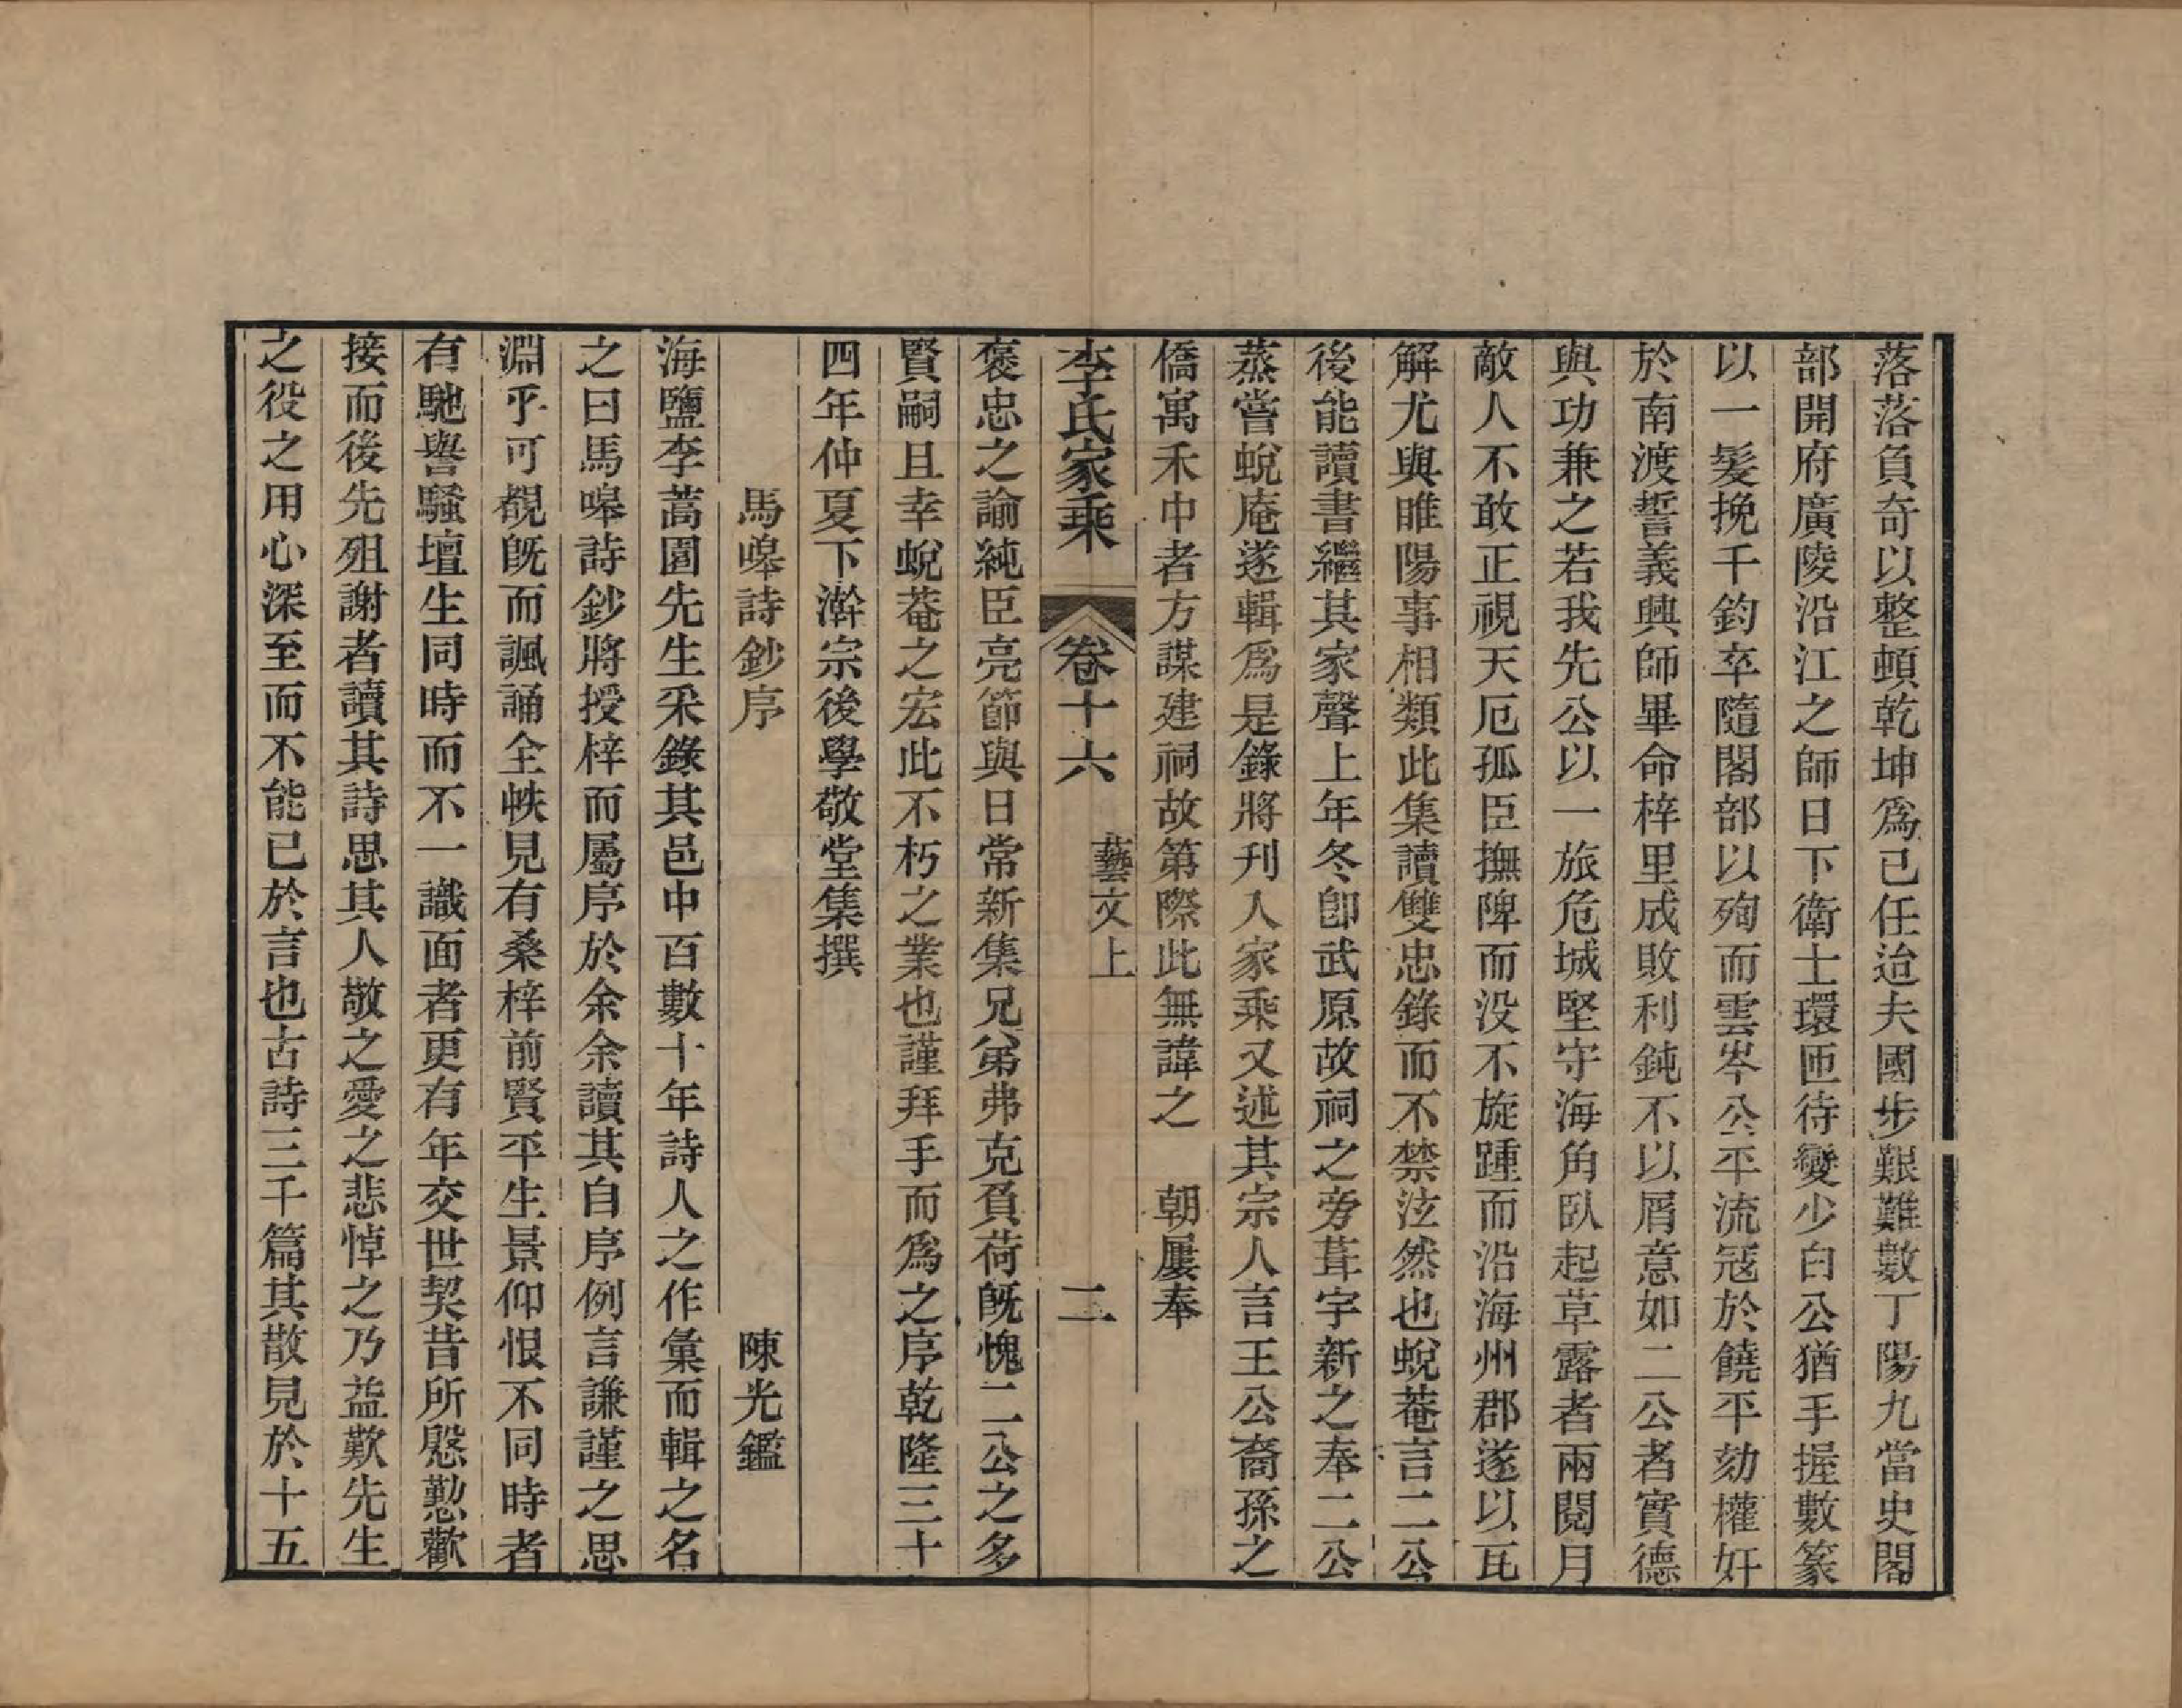 落落負奇以整頓乾坤爲己任迨夫國步艱難數丁陽九當史閣
部開府廣陵沿江之師日下衛士環匝待變少白公猶手握數篆
以一髮挽千鈞卒隨閣部以殉而雲岑公平流寇於饒平劾權奸
於南渡誓義興師畢命梓里成敗利鈍不以屑意如二公者實德
與功兼之若我先公以一旅危城堅守海角臥起草露者兩閱月
敵人不敢正視天厄孤臣撫陴而没不旋踵而沿海州郡遂以瓦
解尤與睢陽事相類此集讀雙忠錄而不禁泫然也蛻菴言二公
後能讀書繼其家聲上年冬卽武原故祠之旁葺宇新之奉二公
蒸嘗蛻庵遂輯爲是錄將刊入家乘又述其宗人言王公裔孫之
僑寓禾中者方謀建祠故第際此無諱之　朝屢奉
李氏家乘　卷十六　藝文上　二
褒忠之諭純臣亮節與日常新集兄弟弗克負荷旣愧二公之多
賢嗣且幸蛻菴之宏此不朽之業也謹拜手而爲之序乾隆三十
四年仲夏下澣宗後學敬堂集撰
馬嘷詩鈔序　陳光鑑
海鹽李蒿園先生采錄其邑中百數十年詩人之作彙而輯之名
之曰馬嘷詩鈔將授梓而屬序於余余讀其自序例言謙謹之思
淵乎可覩旣而諷誦全帙見有桑梓前賢平生景仰恨不同時者
有馳譽騷壇生同時而不一識面者更有年交世契昔所慇懃歡
接而後先殂謝者讀其詩思其人敬之愛之悲悼之乃益歎先生
之役之用心深至而不能已於言也古詩三千篇其散見於十五